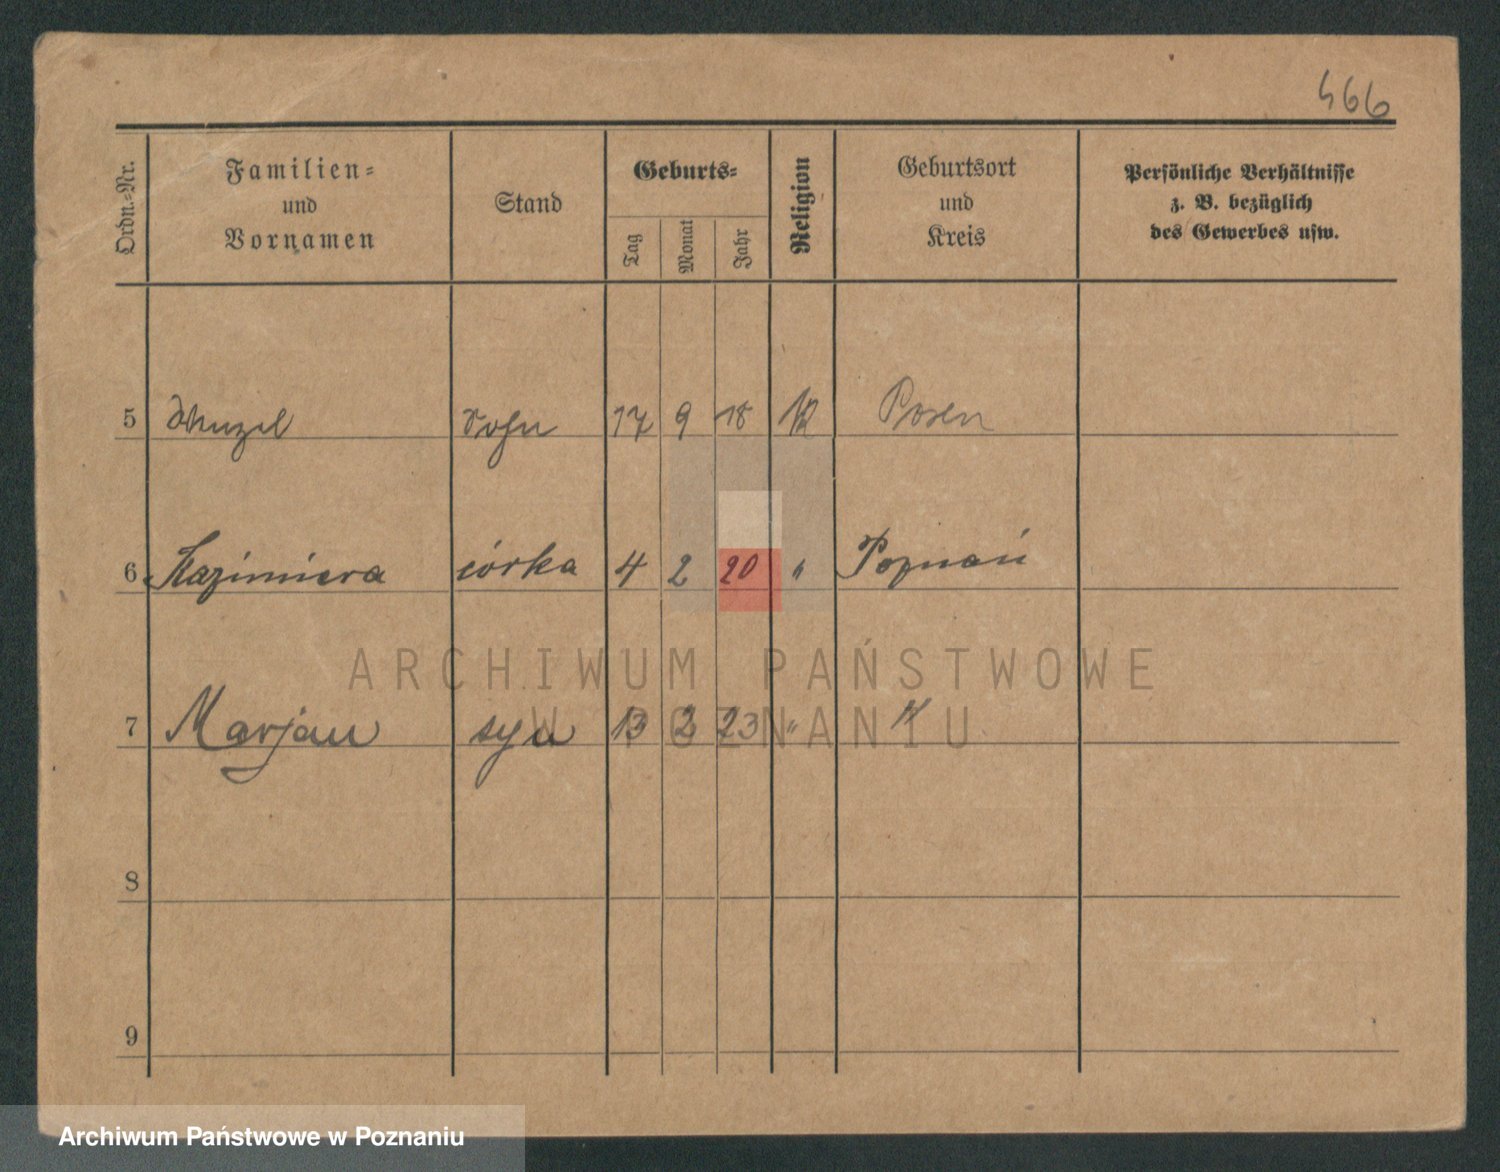 466
Ordn.-Nr.
Familien-
und
Vornamen
Stand
Geburts-
Tag
Monat
Jahr
Religion
Geburtsort
und
Kreis
Persönliche Verhältnisse
z. B. bezüglich
des Gewerbes usw.
5 Wenzel Sohn 17 9 18 K Posen
6 Kazimiera córka 4 2 20 " Poznań
7 Marjan syn 13 2 23 " "
8
9
ARCHIWUM PAŃSTWOWE
W POZNANIU
Archiwum Państwowe w Poznaniu